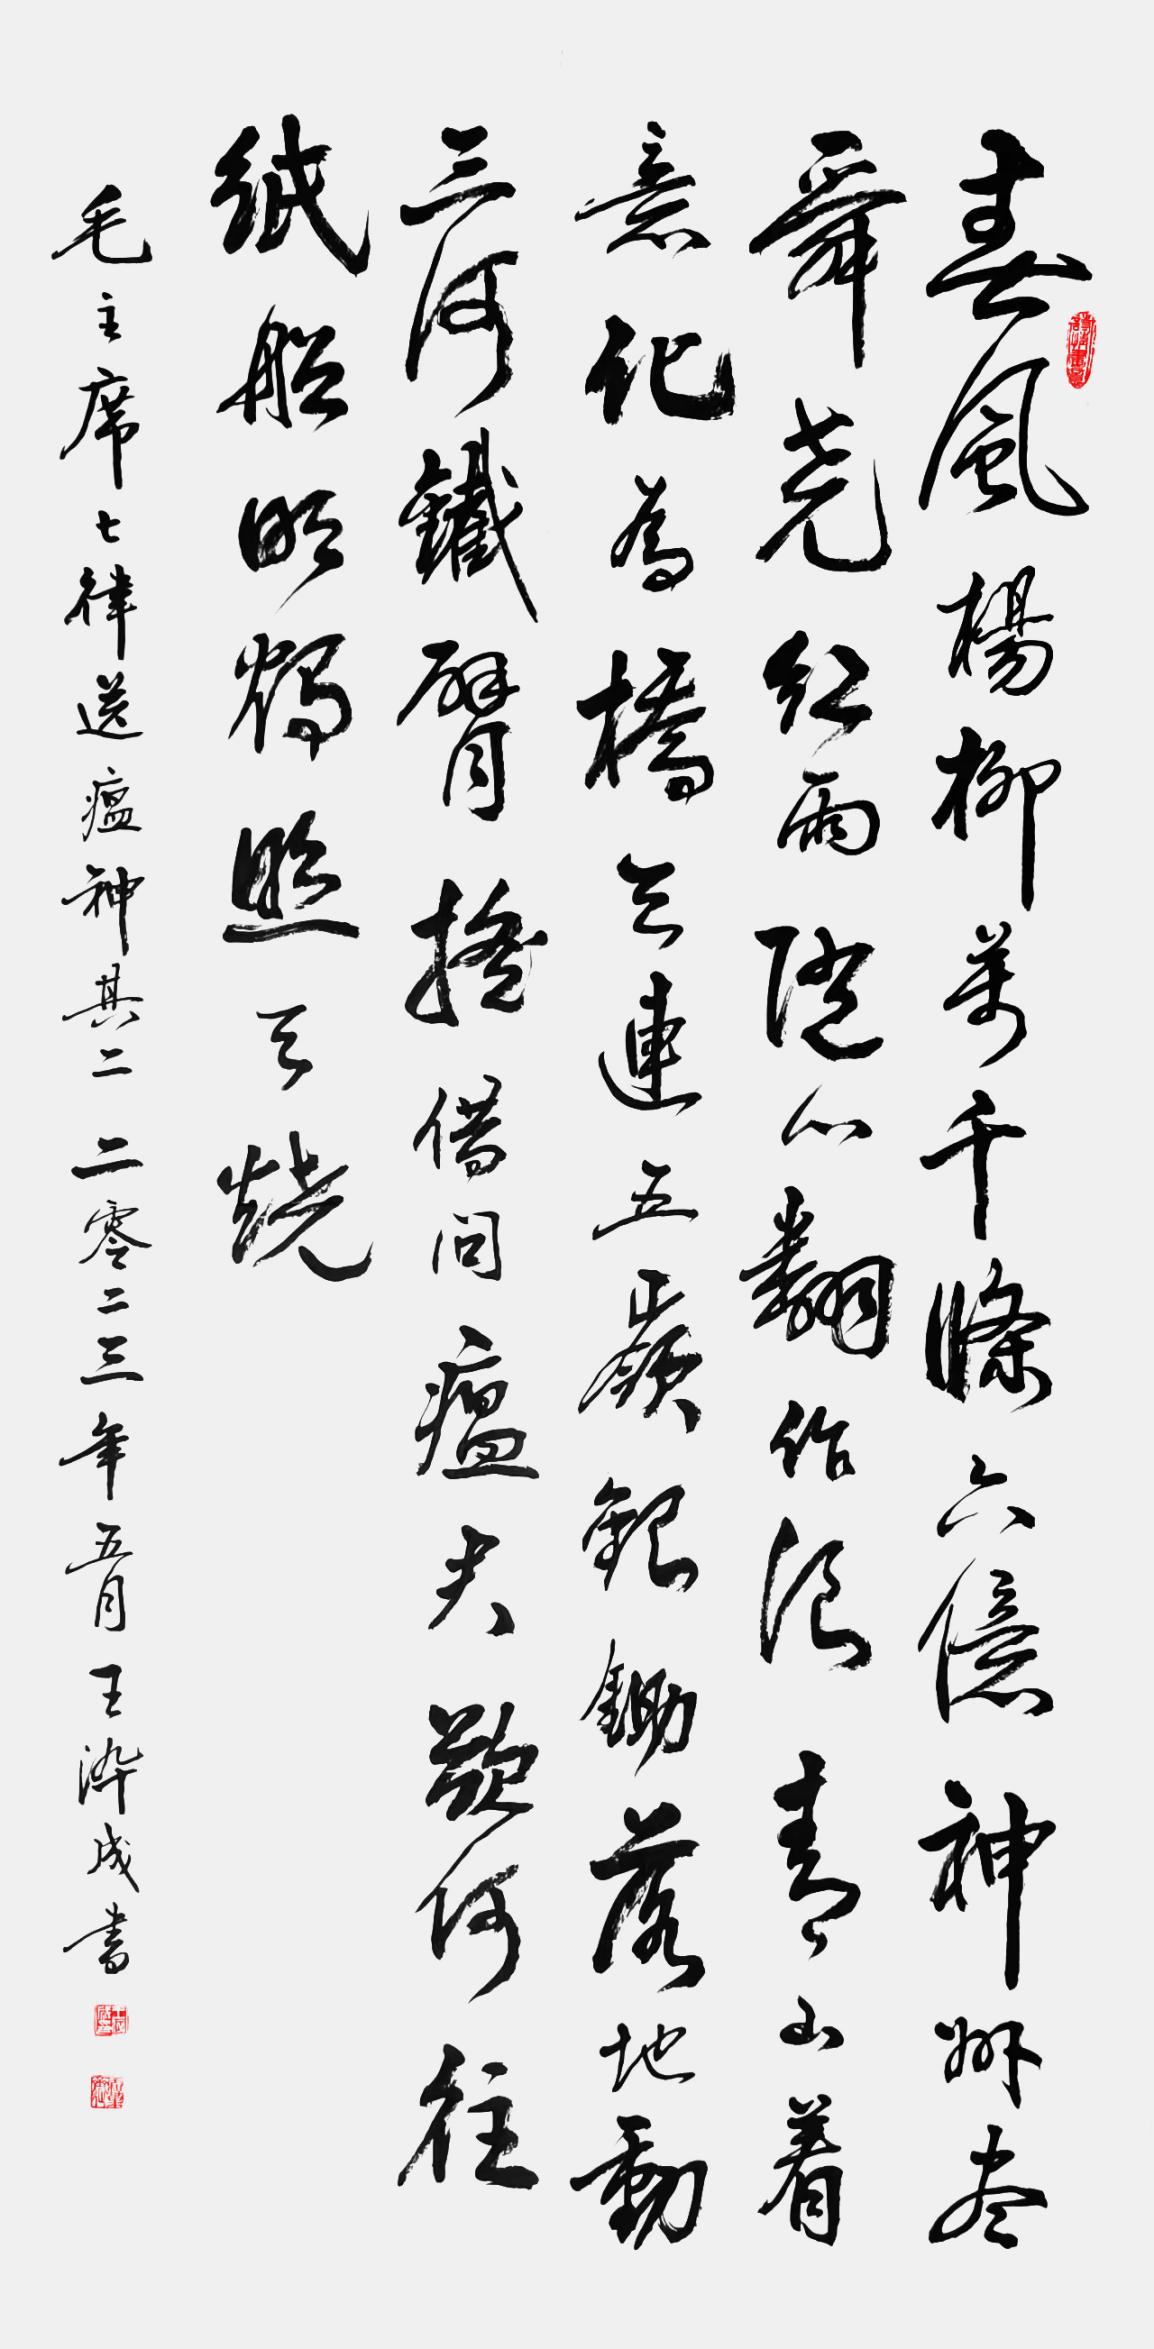 春風楊柳萬千條六億神州盡
舜尧紅雨隨心翻作浪青山着
意化為橋天連五嶺銀鋤落地動
三河鐵臂搖借問瘟君欲何往
紙船明燭照天燒
毛主席七律送瘟神其二 二零二三年五月王淬成書